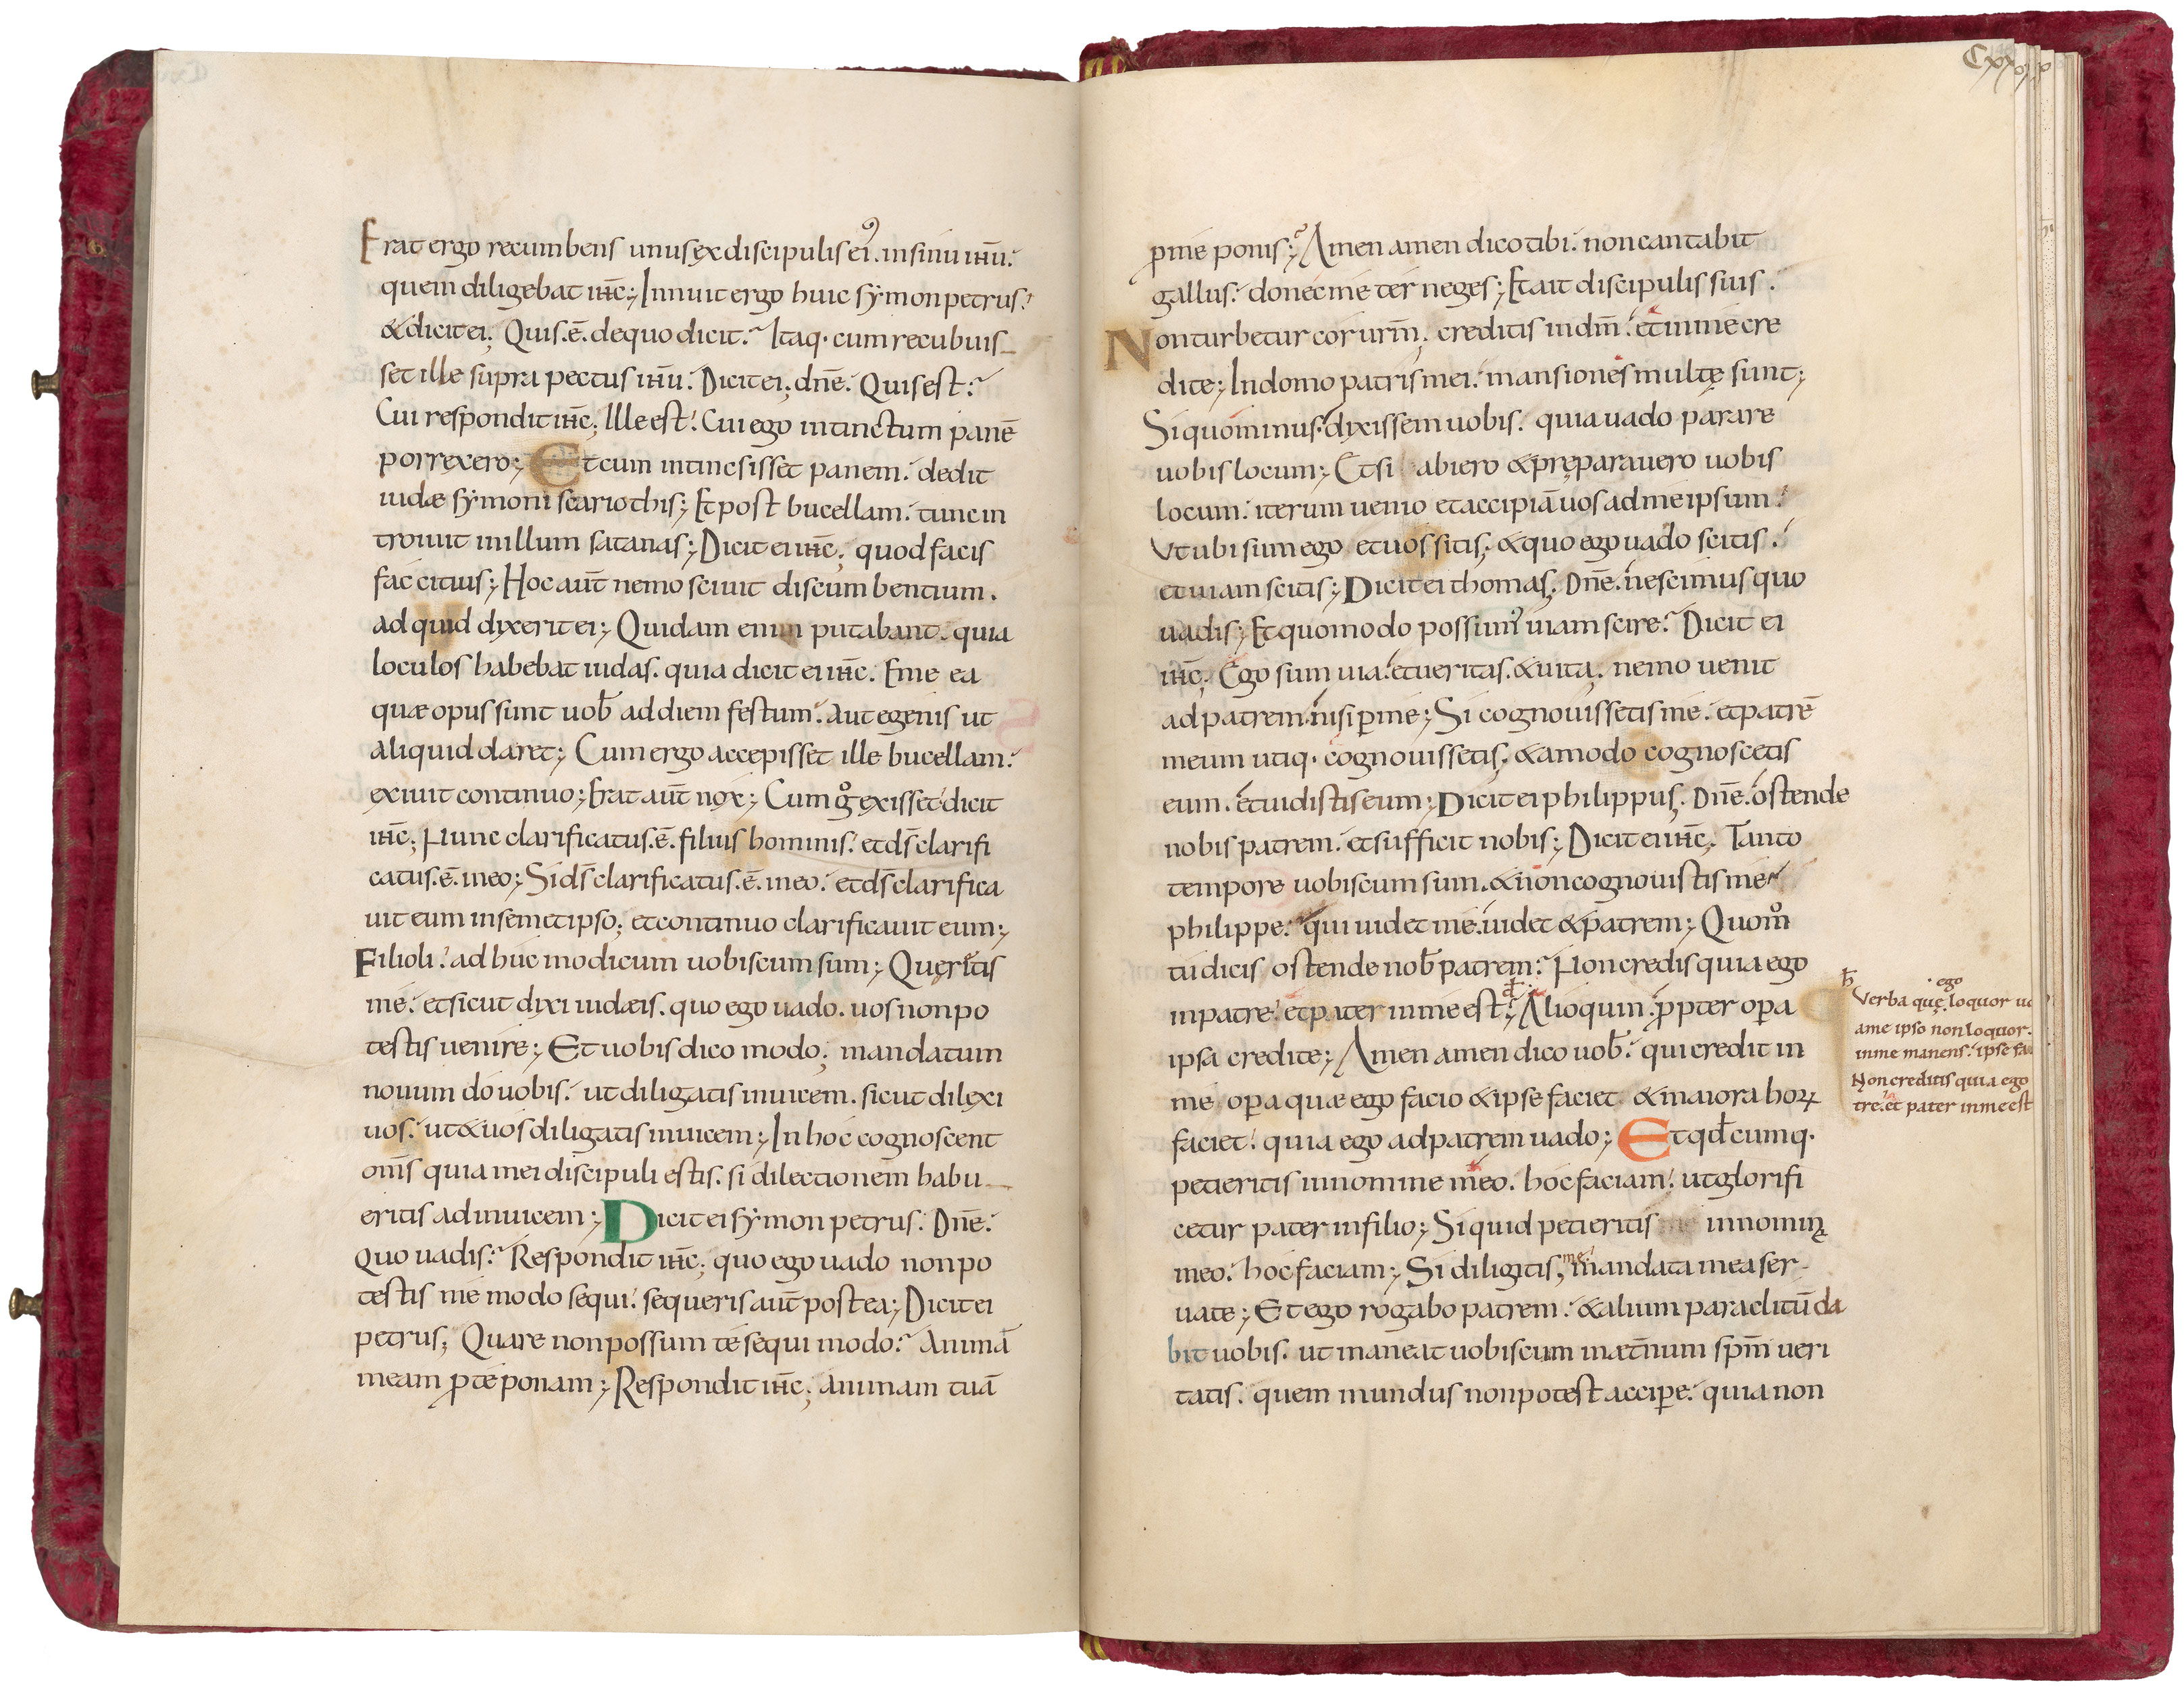 Erat ergo recumbens unus ex discipulis ei᾿. in sinu ihu.
quem diligebat ihc; Innuit ergo huic symon petrus.
& dicit ei; Quis .ē. de quo dicit? Itaq· cum recubuis
set ille supra pectus ihu. Dicit ei; dnē. Quis est?
Cui respondit ihc; Ille est! Cui ego intinctum panē
porrexero; Et cum intinsisset panem. dedit
iudæ symoni scariothis; Et post bucellam. tunc in
troiuit in illum satanas; Dicit ei ihc; quod facis
fac citius; Hoc aut̄ nemo sciuit discumbentium.
ad quid dixerit ei; Quidam enim putabant. quia
loculos habebat iudas. quia dicit ei ihc. Eme ea
quæ opus sunt uob̄ ad diem festum. Aut egenis ut
aliquid daret; Cum ergo accepisset ille bucellam.
exiuit continuo; Erat aut̄ nox; Cum gͦ exisset dicit
ihc; Nunc clarificatus .ē. filius hominis. et ds̄ clarifi
catus .ē. in eo; Si ds̄ clarificatus .ē. in eo. et ds̄ clarifica
uit eum in semetipso; et continuo clarificauit eum;
Filioli. ad huc modicum uobiscum sum; Queritis
me. et sicut dixi iudæis. quo ego uado. uos non po
testis uenire; Et uobis dico modo; mandatum
nouum do uobis. ut diligatis inuicem. sicut dilexi
uos. ut & uos diligatis inuicem; In hoc cognoscent
om̄s quia mei discipuli estis. si dilectionem habu
eritis ad inuicem; Dicit ei symon petrus. Dnē.
Quo uadis? Respondit ihc; quo ego uado non po
testis me modo sequi. sequeris aut̄ postea; Dicit ei
petrus; Quare non possum te sequi modo? Animā
meam p te ponam; Respondit ihc; animam tuā
Cxx
p me ponis; Amen amen dico tibi. non cantabit
gallus. donec me ter neges; Et ait discipulis suis.
Non turbetur cor urm̄; creditis in dm̄. et in me cre
dite; In domo patris mei. mansiones multę sunt;
Si quominus. dixissem uobis. quia uado parare
uobis locum; Et si abiero & pręparauero uobis
locum. iterum uenio et accipiā uos ad me ipsum.
Ut ubi sum ego et uos sitis; & quo ego uado scitis.
et uiam scitis; Dicit ei thomas; Dnē. nescimus quo
uadis; Et quomodo possum᾿ uiam scire? Dicit ei
ihc; Ego sum uia. et ueritas. & uita; nemo uenit
ad patrem. nisi p me; Si cognouissetis me. et patrē
meum utiq· cognouissetis; & amodo cognoscetis
eum. et uidistis eum; Dicit ei philippus; Dnē. ostende
nobis patrem. et sufficit nobis; Dicit ei ihc; Tanto
tempore uobiscum sum. & non cognouistis me?
philippe. qui uidet me. uidet & patrem; Quom̊
tu dicis ostende nob̄ patrem? Non credis quia ego
in patre. et pater in me est; Alioquin. ppter opa
ipsa credite; Amen amen dico uob̄. qui credit in
me opa quæ ego facio & ipse faciet & maiora horꝝ
faciet. quia ego ad patrem uado; Et qđ cumq·
petieritis in nomine meo. hoc faciam. ut glorifi
cetur pater in filio; Si quid petieritis me in nominę
meo. hoc faciam; Si diligitis, me mandata mea ser
uate; Et ego rogabo patrem. & alium paraclitū da
bit uobis. ut maneat uobiscum in æt̄num spm̄ ueri
tatis. quem mundus non potest accipe. quia non
ħ ego
Verba quę loquor
a me ipso non loquor.
in me manens. ipse
Non creditis quia ego
tre. et pater in me est